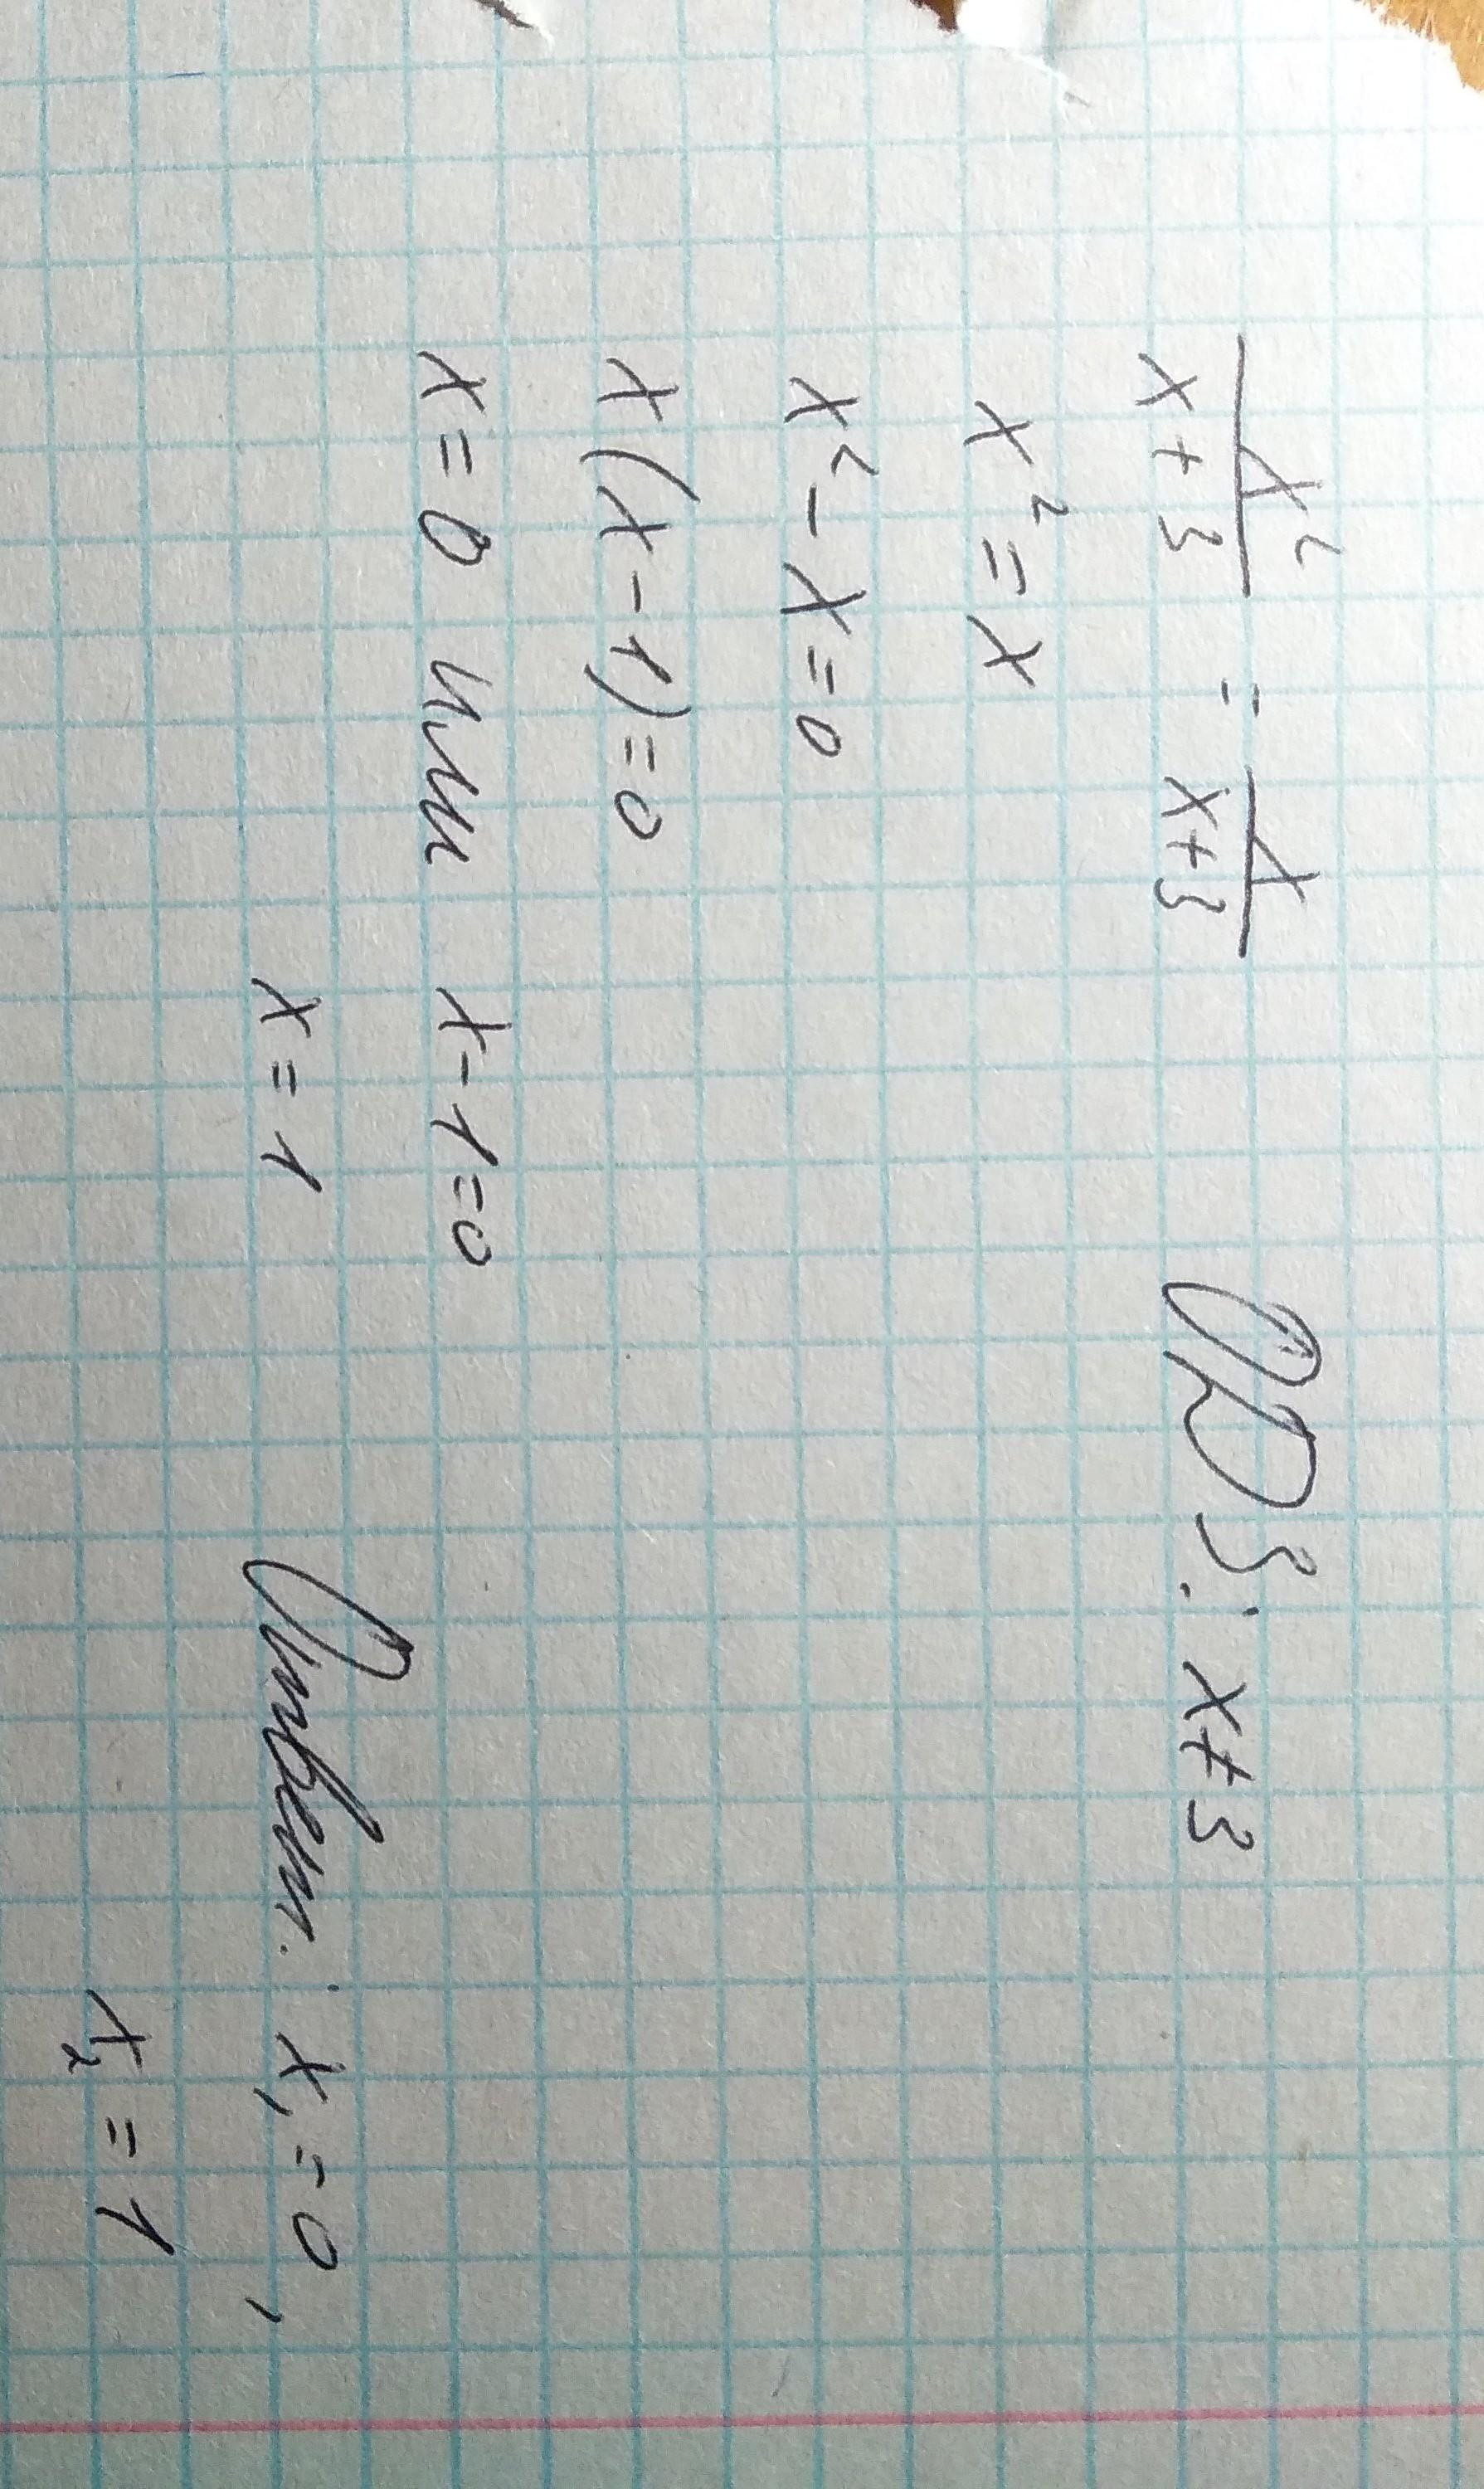 x²/(x+3) = x/(x+3) ОДЗ: x+3
x² = x
x² - x = 0
x(x-1) = 0
x = 0 или x - 1 = 0
x = 1
Ответ: x₁ = 0,
x₂ = 1